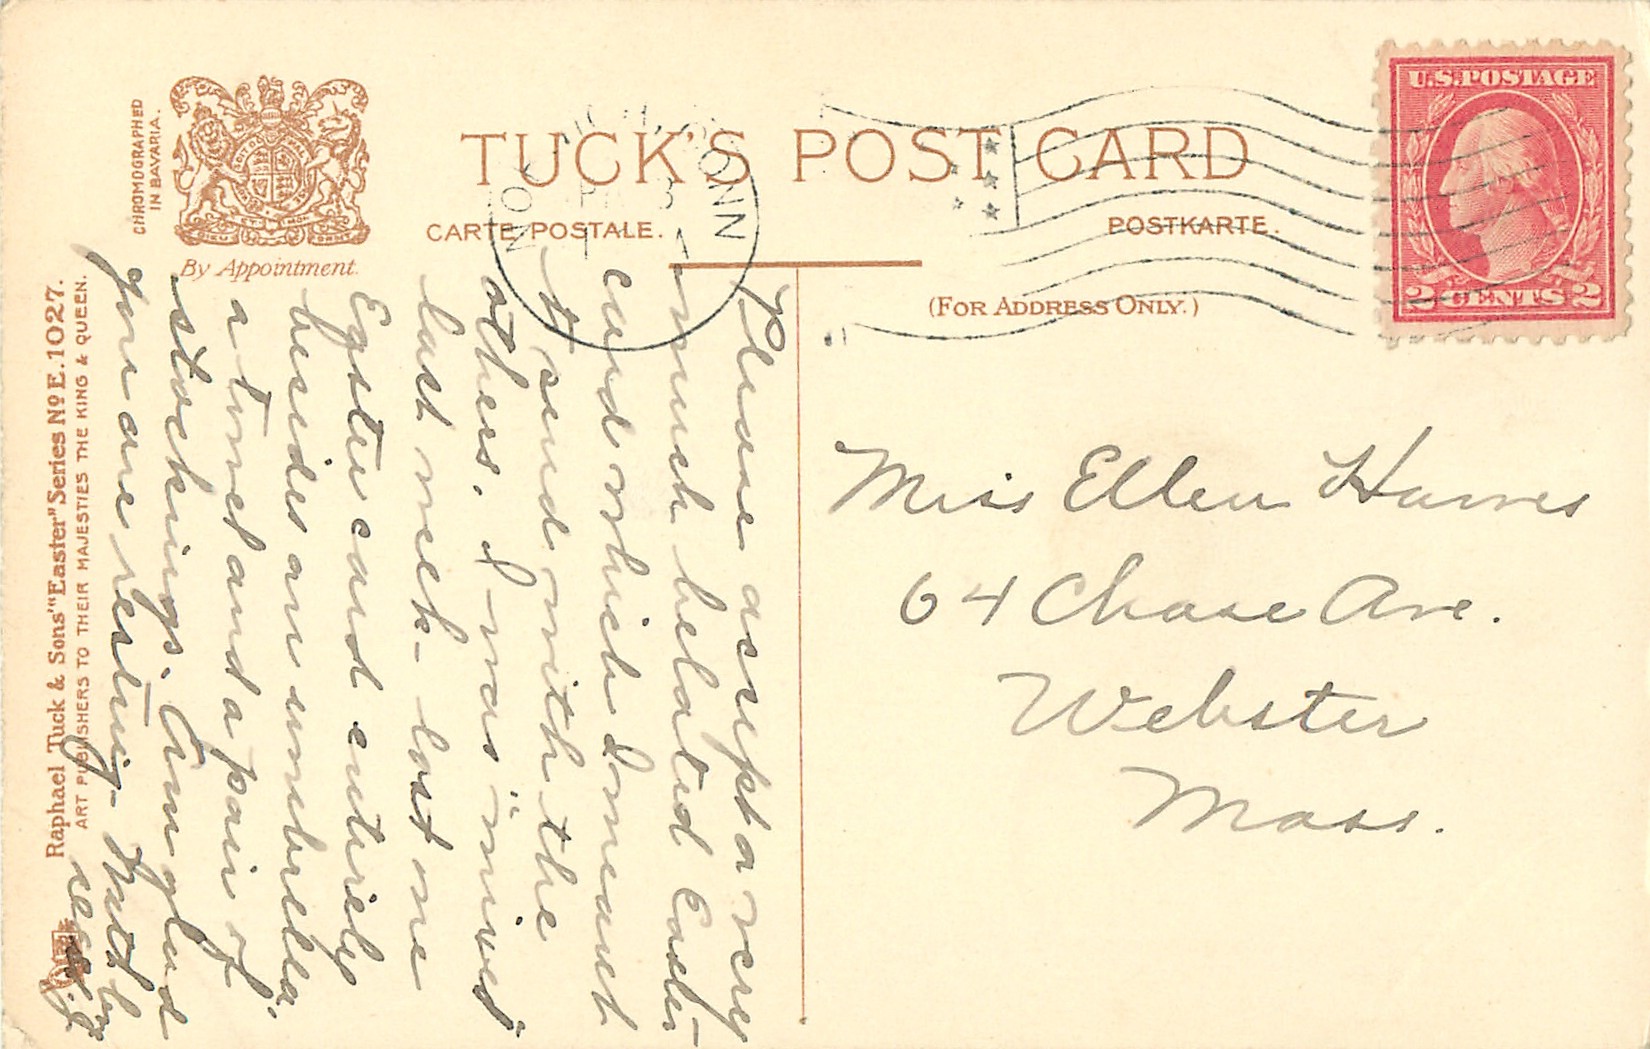 CHROMOGRAPHED
IN BAVARIA.
By Appointment.
TUCK'S POST CARD
CARTE POSTALE.
POSTKARTE.
(FOR ADDRESS ONLY.)
U.S. POSTAGE
2 CENTS 2
CONN
Raphael Tuck & Sons' "Easter" Series No E. 1027.
ART PUBLISHERS TO THEIR MAJESTIES THE KING & QUEEN.
Please accept a very
much belated Easter
card which I meant
to send with the
others. I was "mixed"
last week - lost one
Easter card entirely
besides an umbrella,
a towel and a pair of
stockings. Am glad
you are resting.
Miss Ellen
64 Chase Ave.
Webster
Mass.